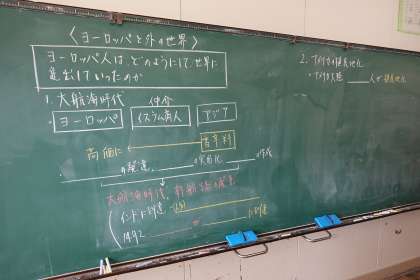 〈ヨーロッパと外の世界〉
ヨーロッパ人は、どのようにして世界に
進出していったのか
1. 大航海時代
仲介
・ヨーロッパ イスラム商人 アジア
高価に 香辛料
の発達、 の実用化、 の作成
大航海時代、新航路の
インド到達
1492
2. アメリカの植民地化
・アメリカ大陸 人が植民地化